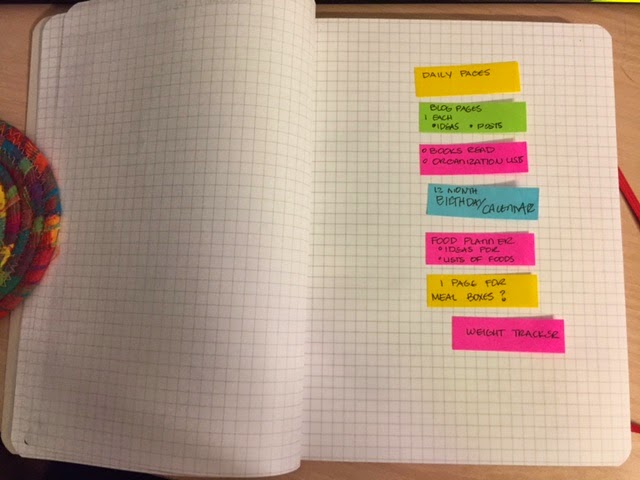 DAILY PAGES
BLOG PAGES
1 EACH
*IDEAS * POSTS
○ BOOKS READ
○ ORGANIZATION USB
12 MONTH
BIRTHDAY/CALENDAR
FOOD PLANNER
*IDEAS FOR
*LISTS OF FOODS
1 PAGE FOR
MEAL BOXES?
WEIGHT TRACKER